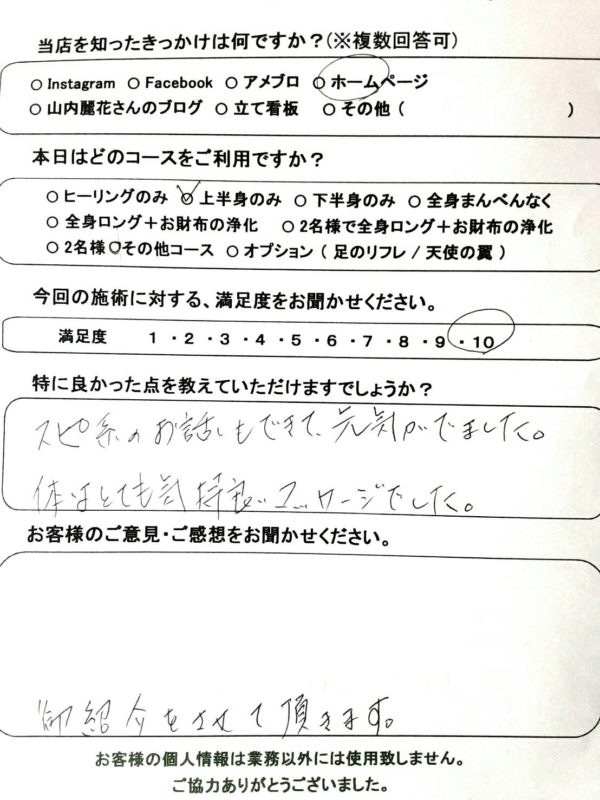 当店を知ったきっかけは何ですか？（※複数回答可）
○ Instagram ○ Facebook ○ アメブロ ○ ホームページ
○ 山内麗花さんのブログ ○ 立て看板 ○ その他（ ）
本日はどのコースをご利用ですか？
○ ヒーリングのみ ○ 上半身のみ ○ 下半身のみ ○ 全身まんべんなく
○ 全身ロング＋お財布の浄化 ○ 2名様で全身ロング＋お財布の浄化
○ 2名様 ○ その他コース ○ オプション（ 足のリフレ / 天使の翼 ）
今回の施術に対する、満足度をお聞かせください。
満足度 1 ・2 ・3 ・4 ・5 ・6 ・7 ・8 ・9 ・10
特に良かった点を教えていただけますでしょうか？
スピ系のお話しもできて、元気がでました。
体はとても気持良いマッサージでした。
お客様のご意見・ご感想をお聞かせください。
御紹介をさせて頂きます。
お客様の個人情報は業務以外には使用致しません。
ご協力ありがとうございました。